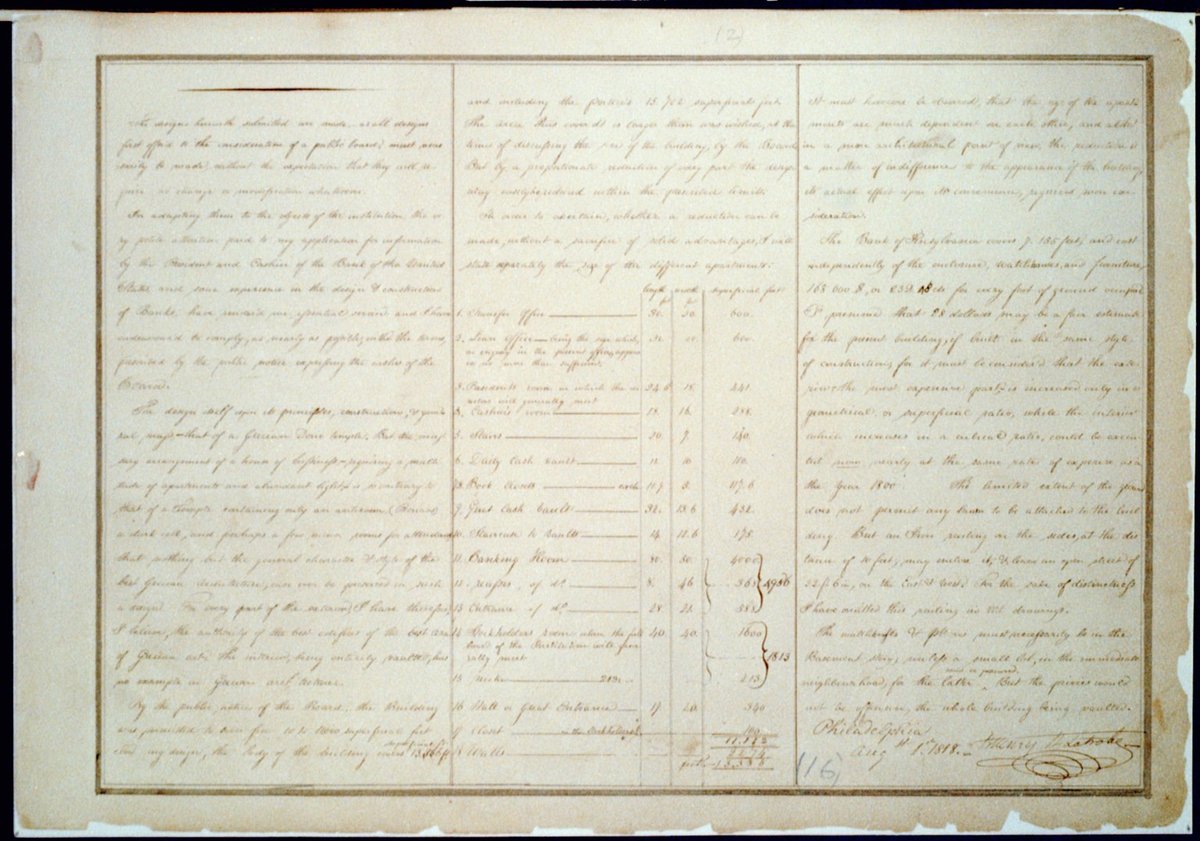 (2)
The designs herewith submitted are made as all designs
first offered to the consideration of a public board, must neces
sarily be made, without the expectation that they will re
quire no change or modification whatsoever.
In adapting them to the objects of the institution the ve
ry polite attention paid to my application for information
by the President and Cashier of the Bank of the United
States and some experience in the design & construction
of Banks, have rendered me essential service and I have
endeavoured to comply, as nearly as possible, with the terms,
presented by the public notice expressing the wishes of the
Board.
The design itself upon its principles, construction, & gene
ral mass that of a Grecian Doric temple; But the neces
sary arrangement of a house of business requiring a multi
tude of apartments and abundant light, is so contrary to
that of a temple containing only an anteroom (Pronaos)
a dark cell, and perhaps a few minor rooms for attendants
that nothing but the general character & style of the
best Grecian Architecture, can now be preserved in such
a design. For every part of the exterior, I have therefore,
I believe, the authority of the best edifices of the best era
of Grecian art. The interior, being entirely vaulted, has
no example in Grecian architecture.
By the public notice of the Board, the Building
was presented to cover from 10 to 11000 superficial feet
in my design, the body of the building covers
and including the porticos 15.702 superficial feet
The area thus covered is larger than was wished, at the
time of discussing the size of the building, by the Board
But by a proportionate reduction of every part the design
may easily be reduced within the prescribed limits.
In order to ascertain, whether a reduction can be
made, without a sacrifice of solid advantages, I will
state separately the size of the different apartments:
length width superficial feet
1. Transfer office 30. 20. 600.
2. Loan office being the size which,
an enquiry in the present office, appears
to be no more than sufficient. 30. 20. 600.
3. President's room in which the di
rectors will generally meet 24.6 18. 441.
4. Cashier's room 18. 16. 288.
5. Stairs 20. 7. 140.
6. Daily Cash vault 11. 10 110.
Book closets each
9. Great Cash Vault 32. 13.6 432.
10. Staircase to vaults 14. 12.6 175
11. Banking Room 80. 50. 4000
12. Recesses, of do. 8. 46 368 4956
13. Entrance of do. 28 21. 588
14. Stockholders room where the full
board of the Institution will gene
rally meet 40. 40. 1600 1813
15. Niche 213. 213
16. Hall or Great Entrance 17. 20. 340
17. Closet in the Stockholders room
18 Walls
It must however be observed, that the size of the apart
ments are much dependent on each other, and altho'
in a mere architectural point of view, the reduction is
a matter of indifference to the appearance of the building
its actual effect upon its convenience, requires some con
sideration.
The Bank of Pensylvania covers 7.155 feet, and cost
independently of the enclosure, watchhouses, and furniture,
165 000 $, or 23 $ for every foot of ground occupied
I presume that 28 dollars may be a fair estimate
for the present building, if built in the same style
of construction; for it must be consider'd that the exte
rior, the most expensive part, is increased only in a
geometrical, or superficial ratio, while the interior
which increases in a cubical ratio, could be execu
ted now nearly at the same rate of expense as in
the Year 1800. The limited extent of the ground
does not permit any lawn to be attached to the buil
ding. But an Iron railing on the sides, at the dis
tance of 10 feet, may enclose it, & leave an open street of
22 ft 6 in, on the East & West. For the sake of distinctness
I have omitted this railing in the drawings.
The watchhouses & must necessarily be in the
Basement story, unless a small lot, in the immediate
neighbourhood, for the latter. But the privies would
not be offensive, the whole building being vaulted.
Philadelphia
Aug 1st 1818.
B Henry Latrobe
116